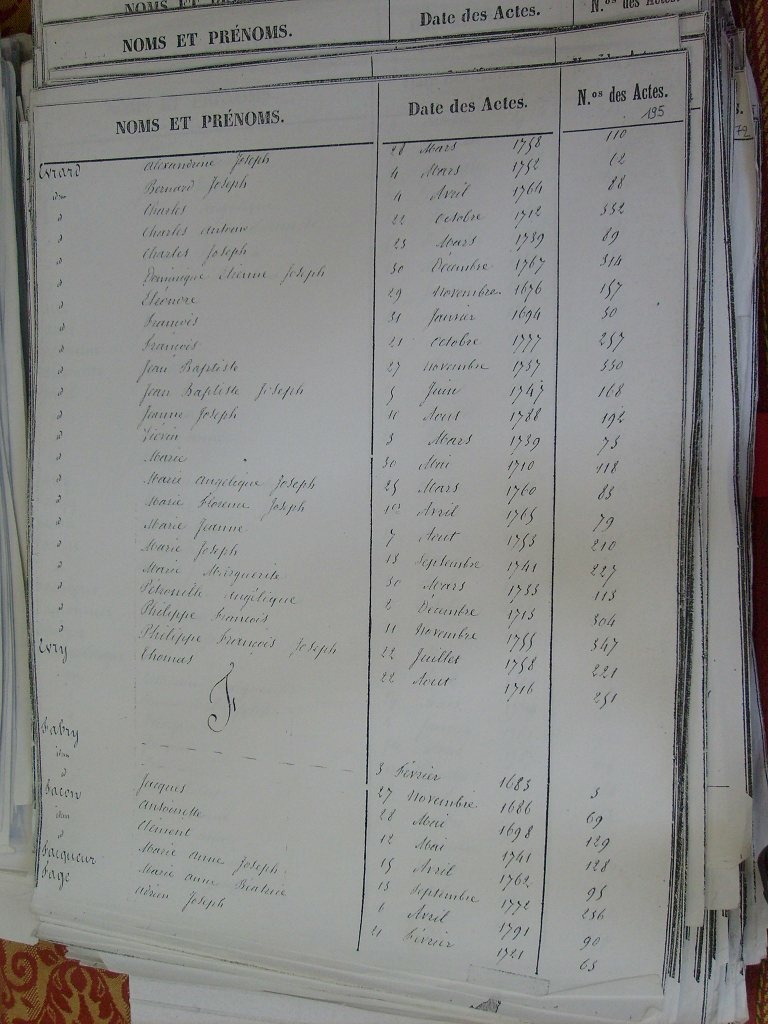 NOMS ET PRÉNOMS. Date des Actes.
NOMS ET PRÉNOMS. Date des Actes. N.os des Actes.
195
Evrard Alexandrine Joseph 28 Mars 1758 110
idem Bernard Joseph 4 Mars 1752 62
d Charles 4 Avril 1764 88
d Charles Antoine 22 Octobre 1712 332
d Charles Joseph 23 Mars 1739 89
d Dominique Etienne Joseph 30 Décembre 1767 314
d Eléonore 29 Novembre 1676 157
d François 31 Janvier 1694 30
d François 21 Octobre 1777 257
d Jean Baptiste 27 Novembre 1737 330
d Jean Baptiste Joseph 5 Juin 1747 168
d Jeanne Joseph Aout 1788 192
d 3 Mars 1739 73
d Marie 30 Mai 1710 118
d Marie Angélique Joseph 25 Mars 1760 83
d Marie Florence Joseph 1er Avril 1765 79
d Marie Jeanne 7 Aout 1753 210
d Marie Joseph 13 Septembre 1741 227
d Marie Marguerite 30 Mars 1733 113
d Pétronille Angélique 2 Décembre 1713 304
d Philippe François 11 Novembre 1755 347
d Philippe François Joseph 22 Juillet 1758 221
Evry Thomas 22 Aout 1716 251
F
Fabry Jacques 3 Février 1683 3
idem Antoinette 27 Novembre 1686 69
d Clément 28 Mai 1698 129
Facon 12 Mai 1741 128
idem Marie Anne Joseph 15 Avril 1762 95
d Marie Anne Béatrice 13 Septembre 1772 236
Facqueur Adrien Joseph 6 Avril 1791 90
Fage 21 Février 1721 63